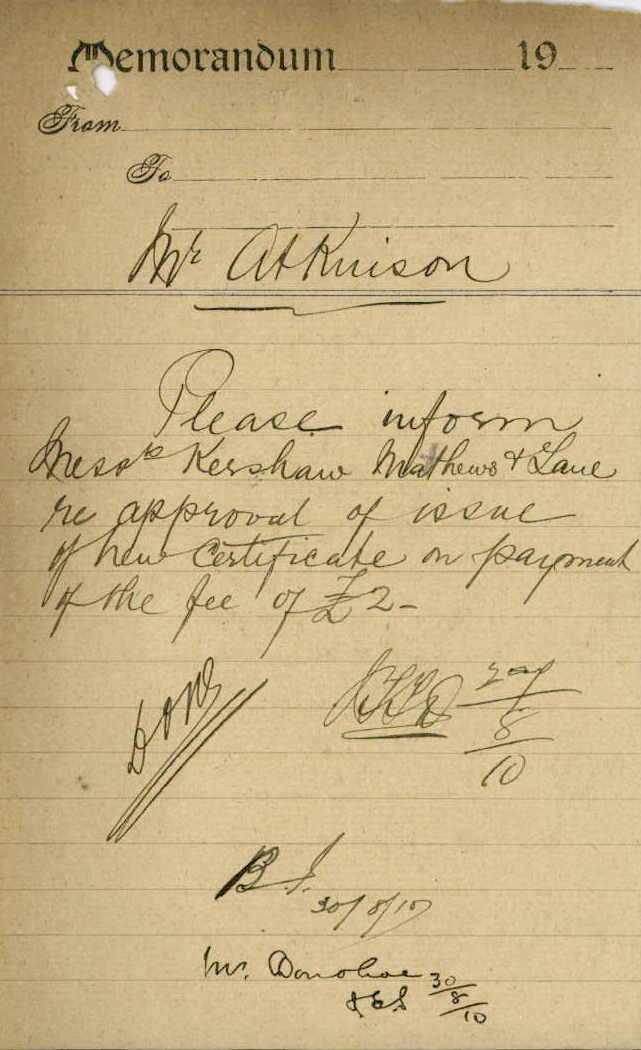 Memorandum 19
From
To
Mr Atkinson
Please inform
Messrs Kershaw Mathews & Lane
re approval of issue
of new Certificate on payment
of the fee of £2-
Done
29/8/10
B.J.
30/8/10
Mr. Donohoe 30/8/10